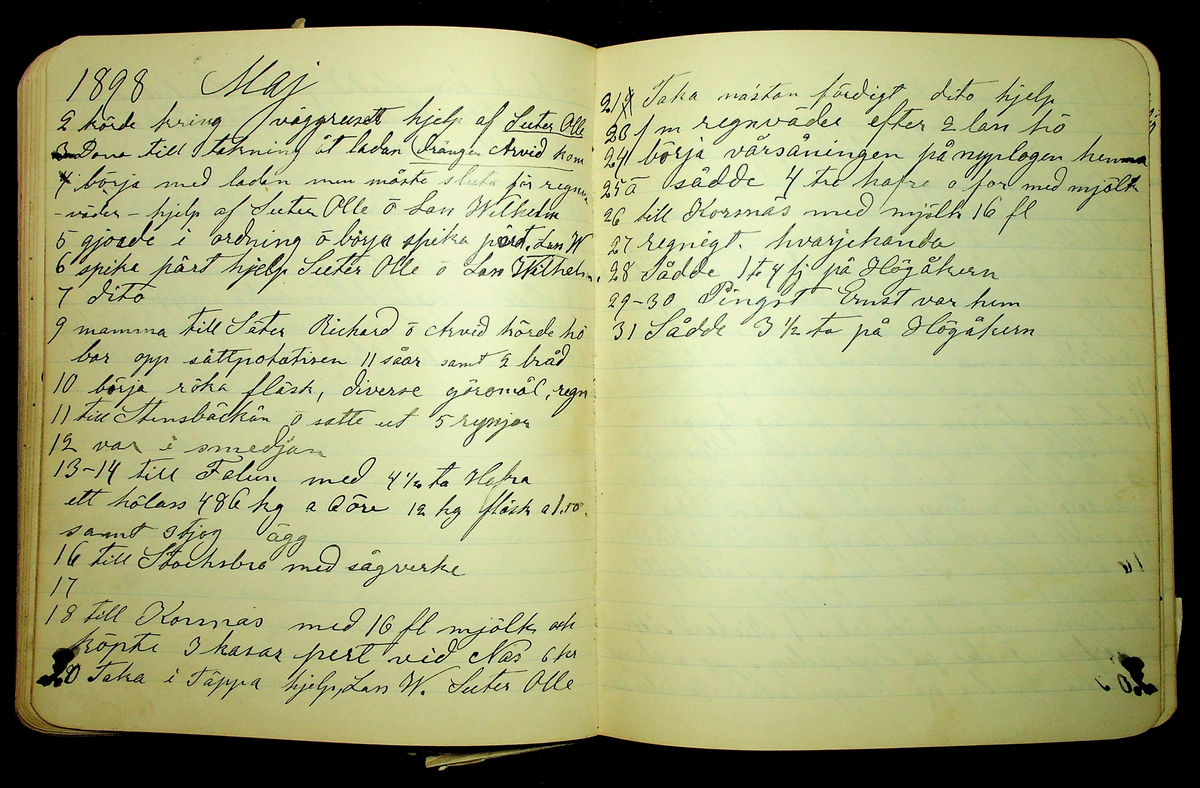 1898 Maj
2 körde kring väggruset hjelp af Suter Olle
3 Dona till takning åt ladan Drängen Arvid kom
4 börja med ladan men måste sluta för regn
-väder- hjelp af Suter Olle ö Lan Wilhelm
5 gjorde i ordning ö börja spika pärt. Lan W
6 spika pärt hjelp Suter Olle ö Lan Wilhelm.
7 dito
9 mamma till Säter Richard ö Arvid körde hö
bar opp sättpotatisen 11 såar samt 2 bråd
10 börja röka fläsk, diverse göromål, regn
11 till Stensbäckån ö satte ut 5 ryssjor
12 var i smedjan
13-14 till Falun med 4 ½ ta Hafra
ett hölass 486 kg a 6 öre 12 kg fläsk a 1.10.
samt 3 tjog ägg
16 till Stocksbro med sågverke
17
18 till Korsnäs med 16 fl mjölk och
köpte 3 kasar pert vid Näs 6 kr
20 Taka i Täppa hjelp, Lan W. Suter Olle
21 Taka nästan färdigt dito hjelp
23 1 m regnväder efter 2 lan hö
24 börja vårsåningen på nyplogen hemma
25 å sådde 4 tre hafre o for med mjölk
26 till Korsnäs med mjölk 16 fl
27 regnigt. hvarjehanda
28 Sådde 1 to 4 fj på Högåkern
29-30 Pingst Ernst var hem
31 Sådde 3 ½ ta på Högåkern